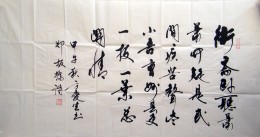 衙斋卧听萧
萧竹疑是民
间疾苦声些
小吾曹州县吏
一枝一叶总
关情
甲午秋
郑板桥诗